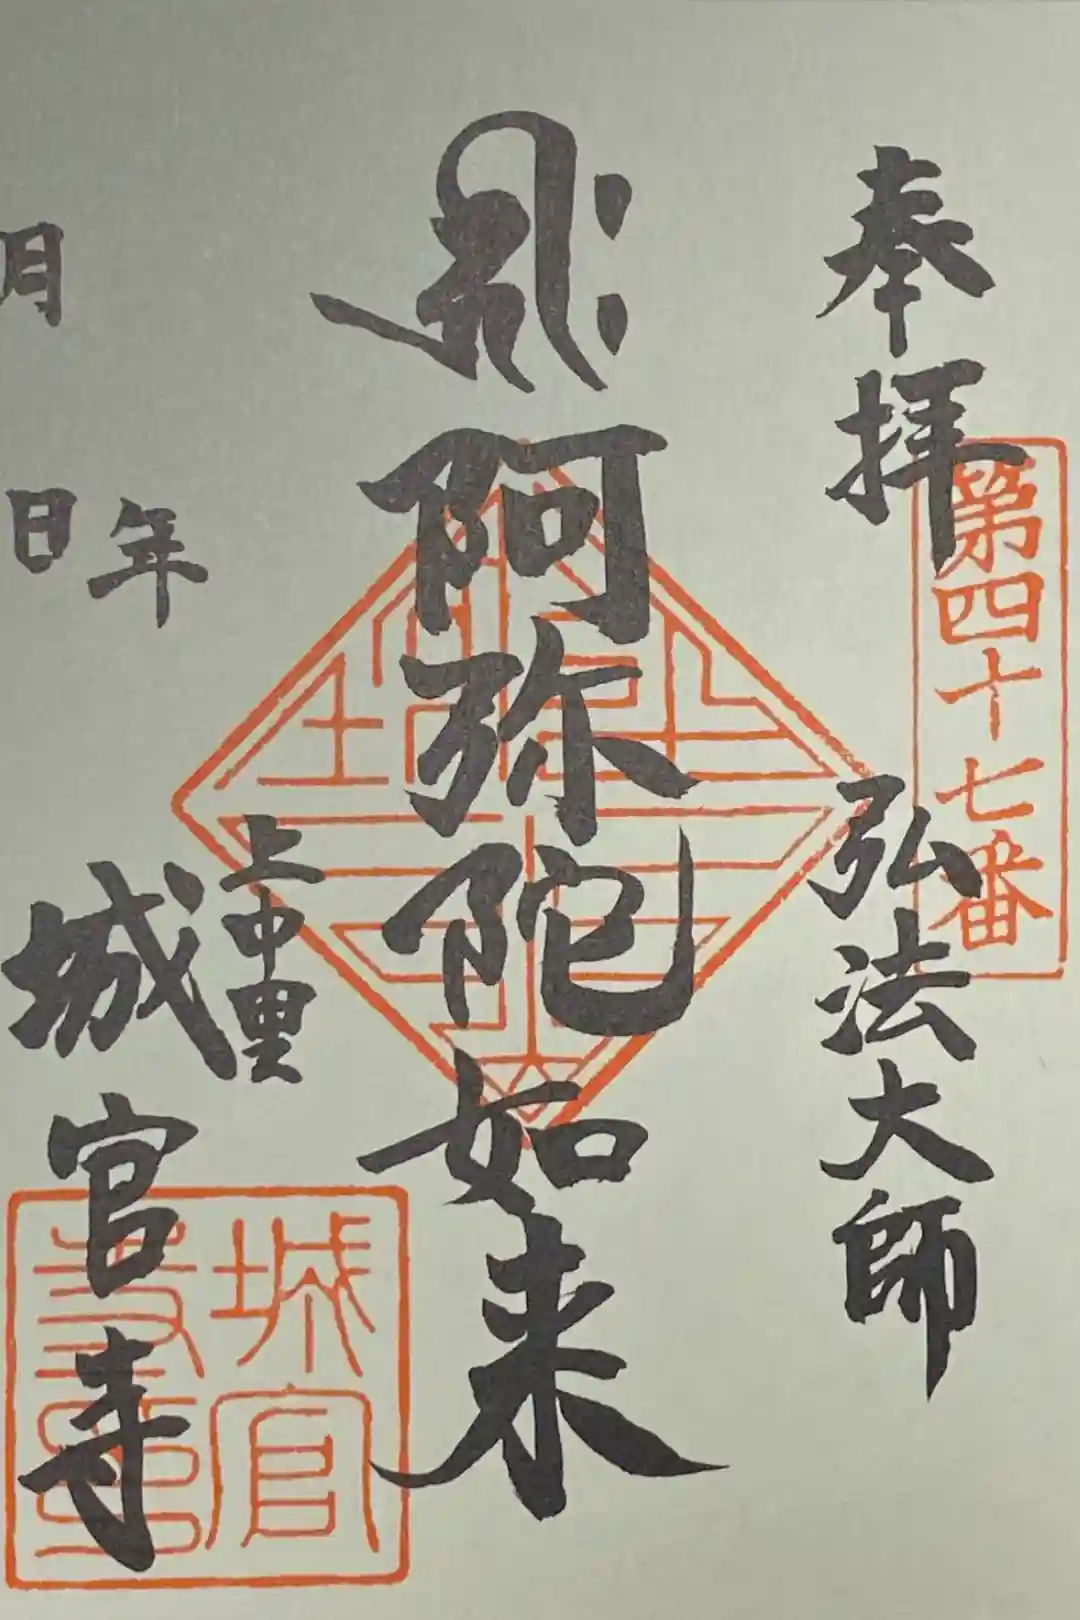 奉拝
第四十七番
弘法大師
阿弥陀如来
上中里
城官寺
年
月
日
城官
寺印